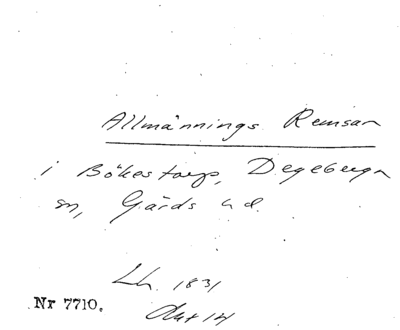 Allmännings Remsan
i Bökestorp, Degeberga
sn, Gärds hd.
Lh. 1831
Nr 7710.
Akt 14